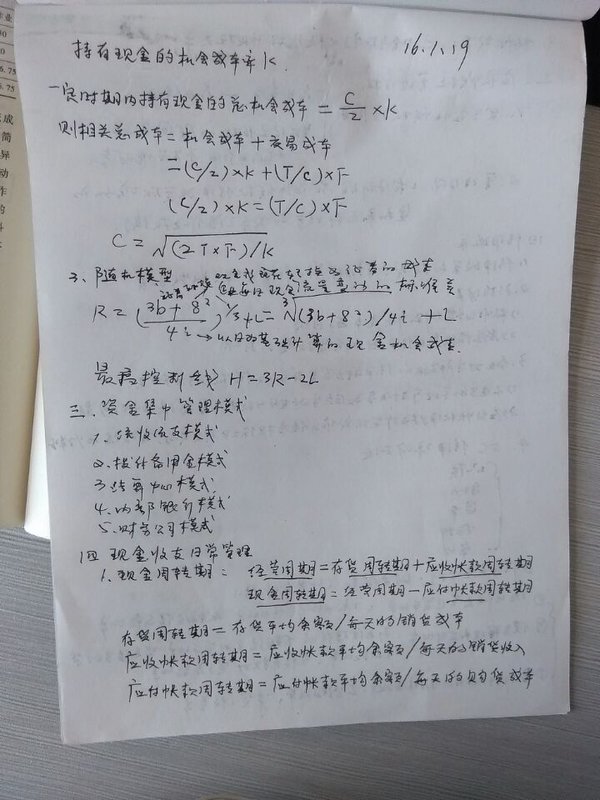 16.1.19
持有现金的机会成本率K.
一定时期内持有现金的总机会成本 = C/2 × K
则相关总成本 = 机会成本 + 交易成本
= (C/2) × K + (T/C) × F
(C/2) × K = (T/C) × F
C = √(2T×F)/K
3、随机模型
R = (3b+8²/4i)^1/3 + L = ³√(3b+8²)/4i + L
4i → 以日为基础计算的现金机会成本.
最高控制线 H = 3R - 2L
三、资金集中管理模式
1、统收统支模式
2、拨付备用金模式
3、结算中心模式
4、内部银行模式
5、财务公司模式
四 现金收支日常管理
1、现金周转期: 经营周期 = 存货周转期 + 应收帐款周转期
现金周转期 = 经营周期 - 应付帐款周转期
存货周转期 = 存货平均余额 / 每天的销货成本
应收帐款周转期 = 应收帐款平均余额 / 每天的销货收入
应付帐款周转期 = 应付帐款平均余额 / 每天的购货成本